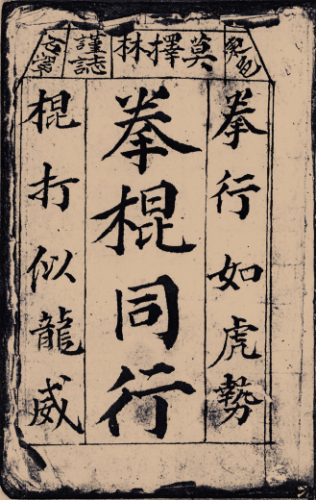 莫擇林
謹誌
拳行如虎勢
拳棍同行
棍打似龍威